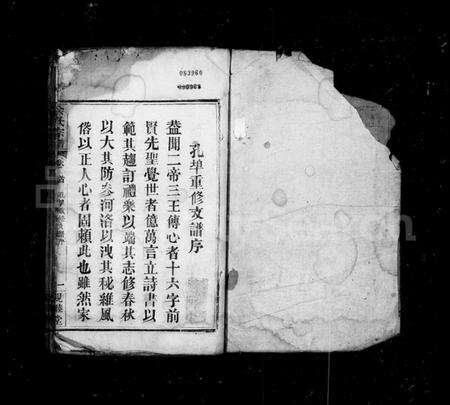 083960
孔埠重修支譜序
葢聞二帝三王傳心者十六字前
賢先聖覺世者億萬言立詩書以
範其趨訂禮樂以端其志修春秋
以大其防參河洛以洩其秘維風
俗以正人心者固賴此也雖然家